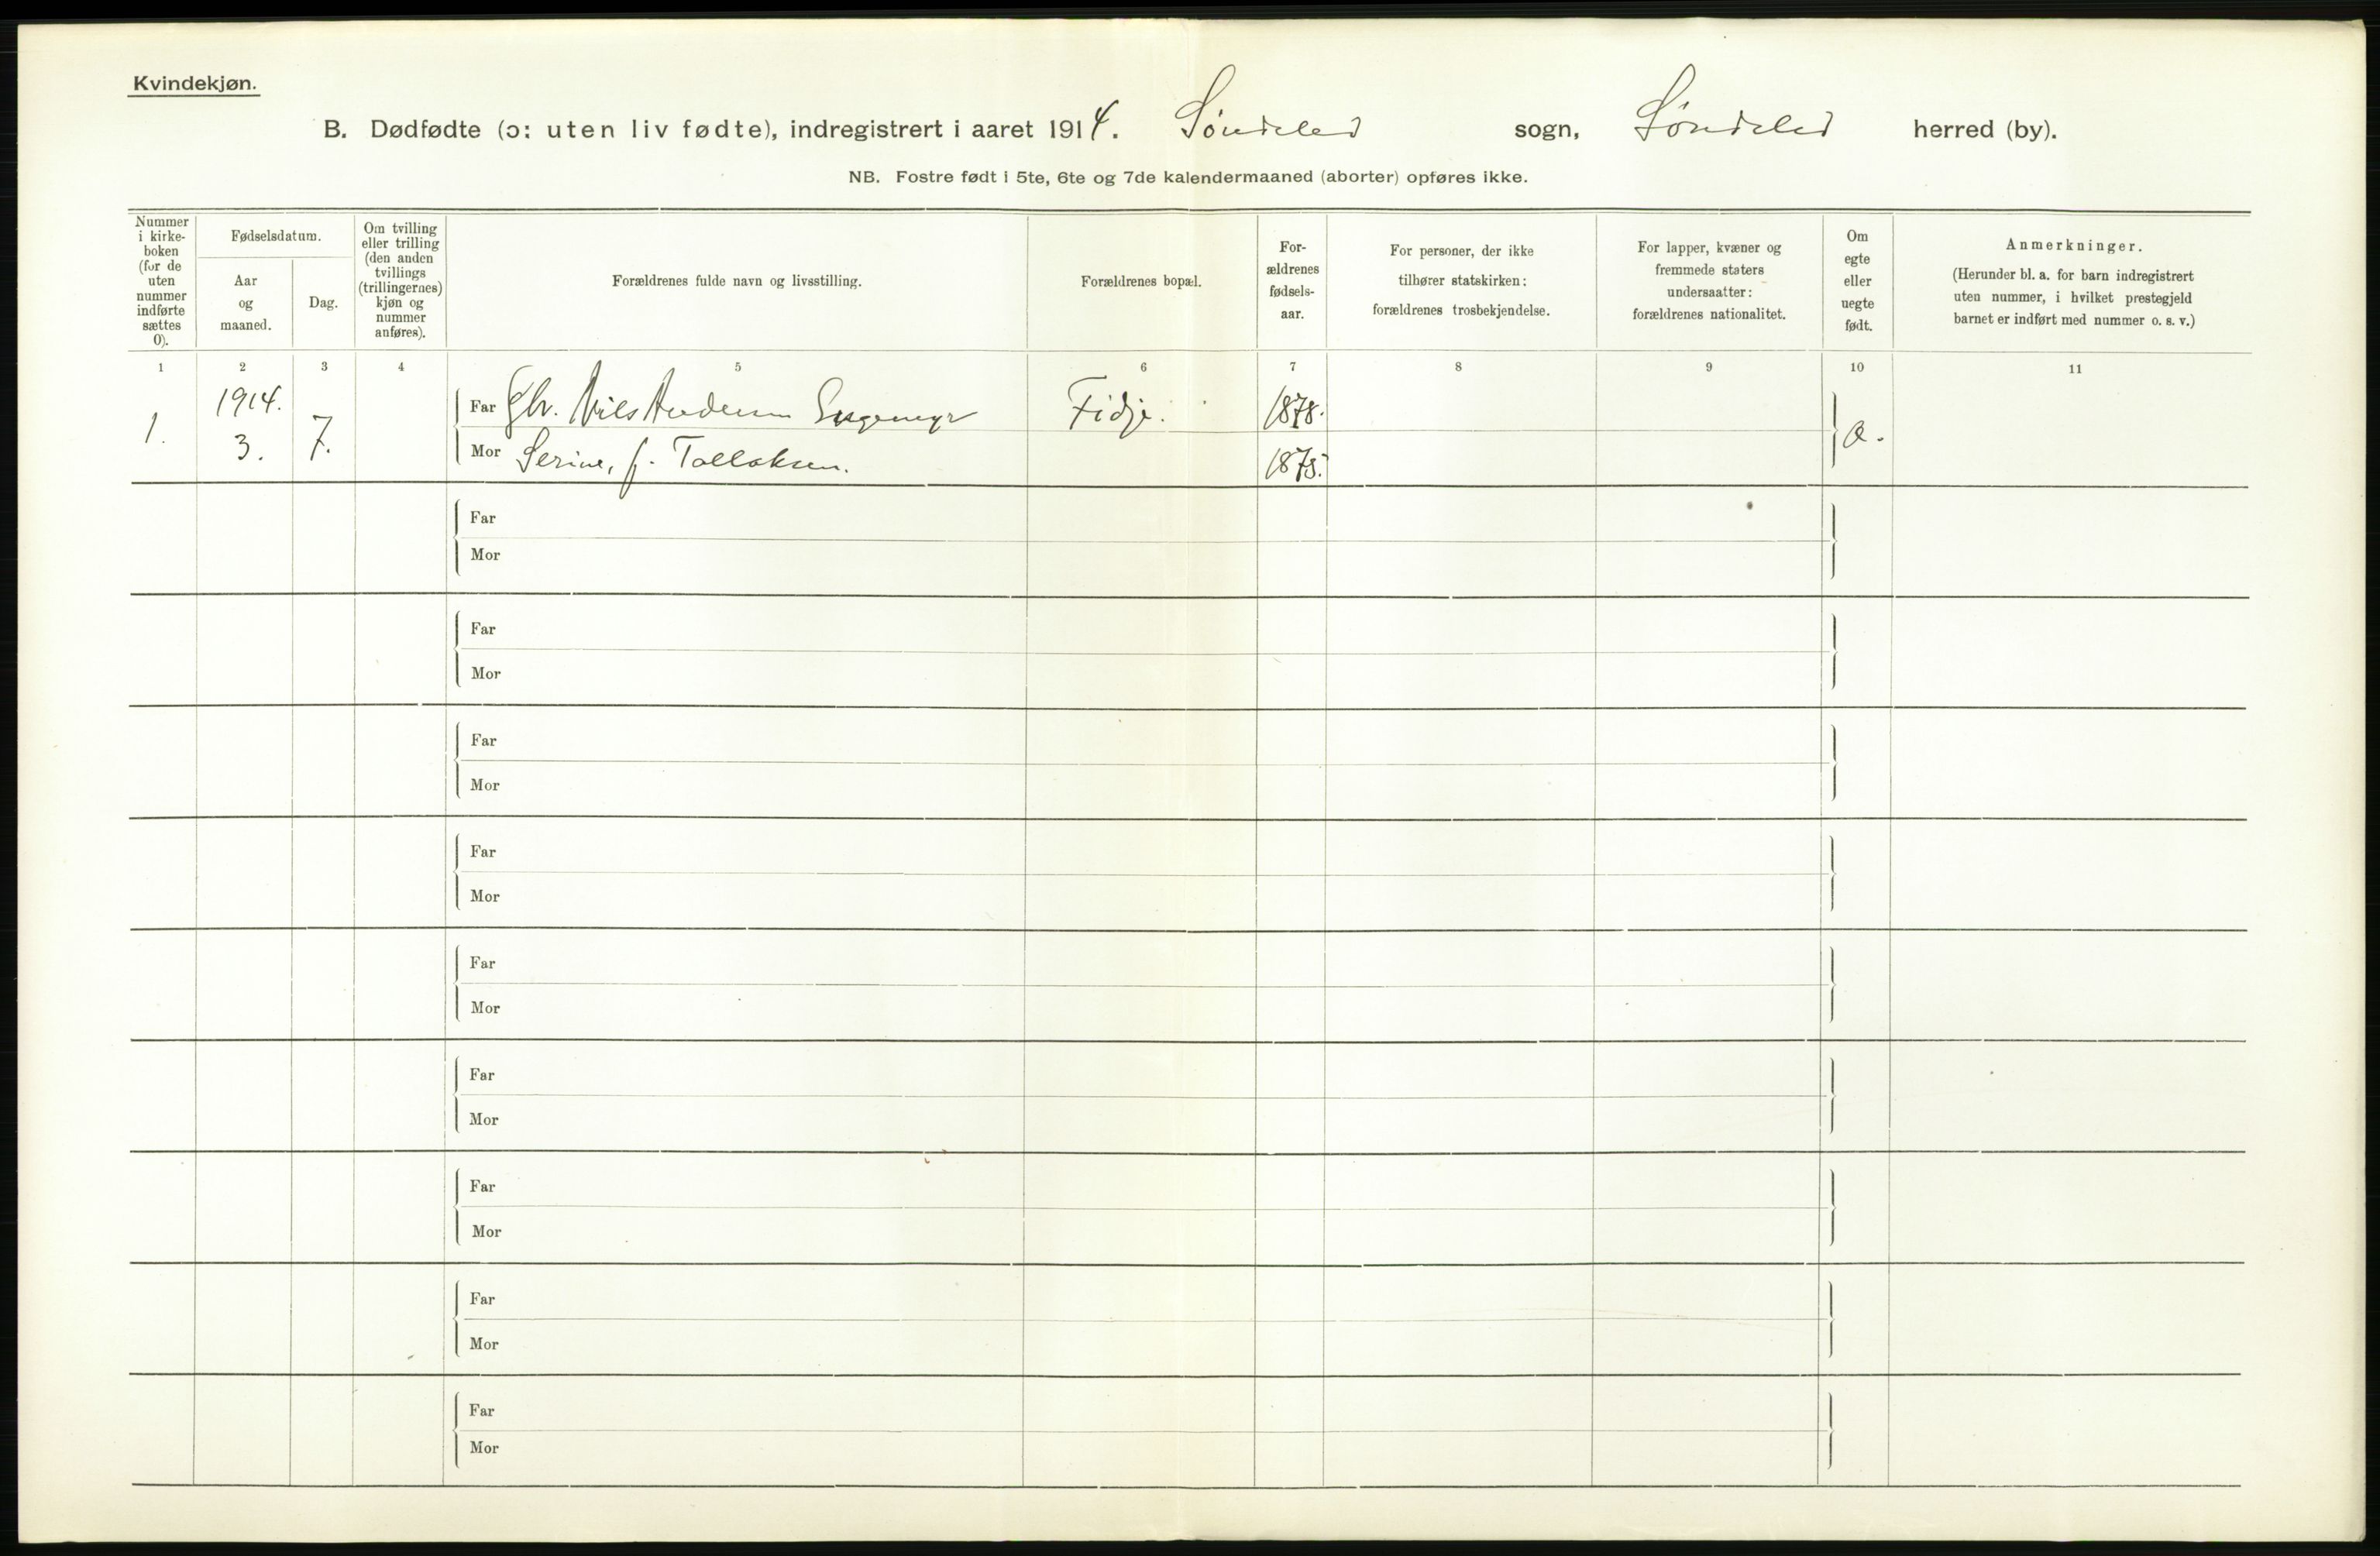 Kvindekjøn.
B. Dødfødte (ɔ: uten liv fødte), indregistrert i aaret 1914. Søndeled sogn, Søndeled herred (by).
NB. Fostre født i 5te, 6te og 7de kalendermaaned (aborter) opføres ikke.
Nummer
i kirke-
boken
(for de
uten
nummer
indførte
sættes
0).
Fødselsdatum.
Aar
og
maaned.
Dag.
Om tvilling
eller trilling
(den anden
tvillings
(trillingernes)
kjøn og
nummer
anføres).
Forældrenes fulde navn og livsstilling.
Forældrenes bopæl.
For-
ældrenes
fødsels-
aar.
For personer, der ikke
tilhører statskirken:
forældrenes trosbekjendelse.
For lapper, kvæner og
fremmede staters
undersaatter:
forældrenes nationalitet.
Om
egte
eller
uegte
født.
Anmerkninger.
(Herunder bl. a. for barn indregistrert
uten nummer, i hvilket prestegjeld
barnet er indført med nummer o. s. v.)
1 2 3 4 5 6 7 8 9 10 11
1. 1914. 3. 7.
Far Gbr. Nils Andersen Fidje. 1878.
Mor Serine, f. Tallaksen. 1875.
Far
Mor
Far
Mor
Far
Mor
Far
Mor
Far
Mor
Far
Mor
Far
Mor
Far
Mor
Far
Mor